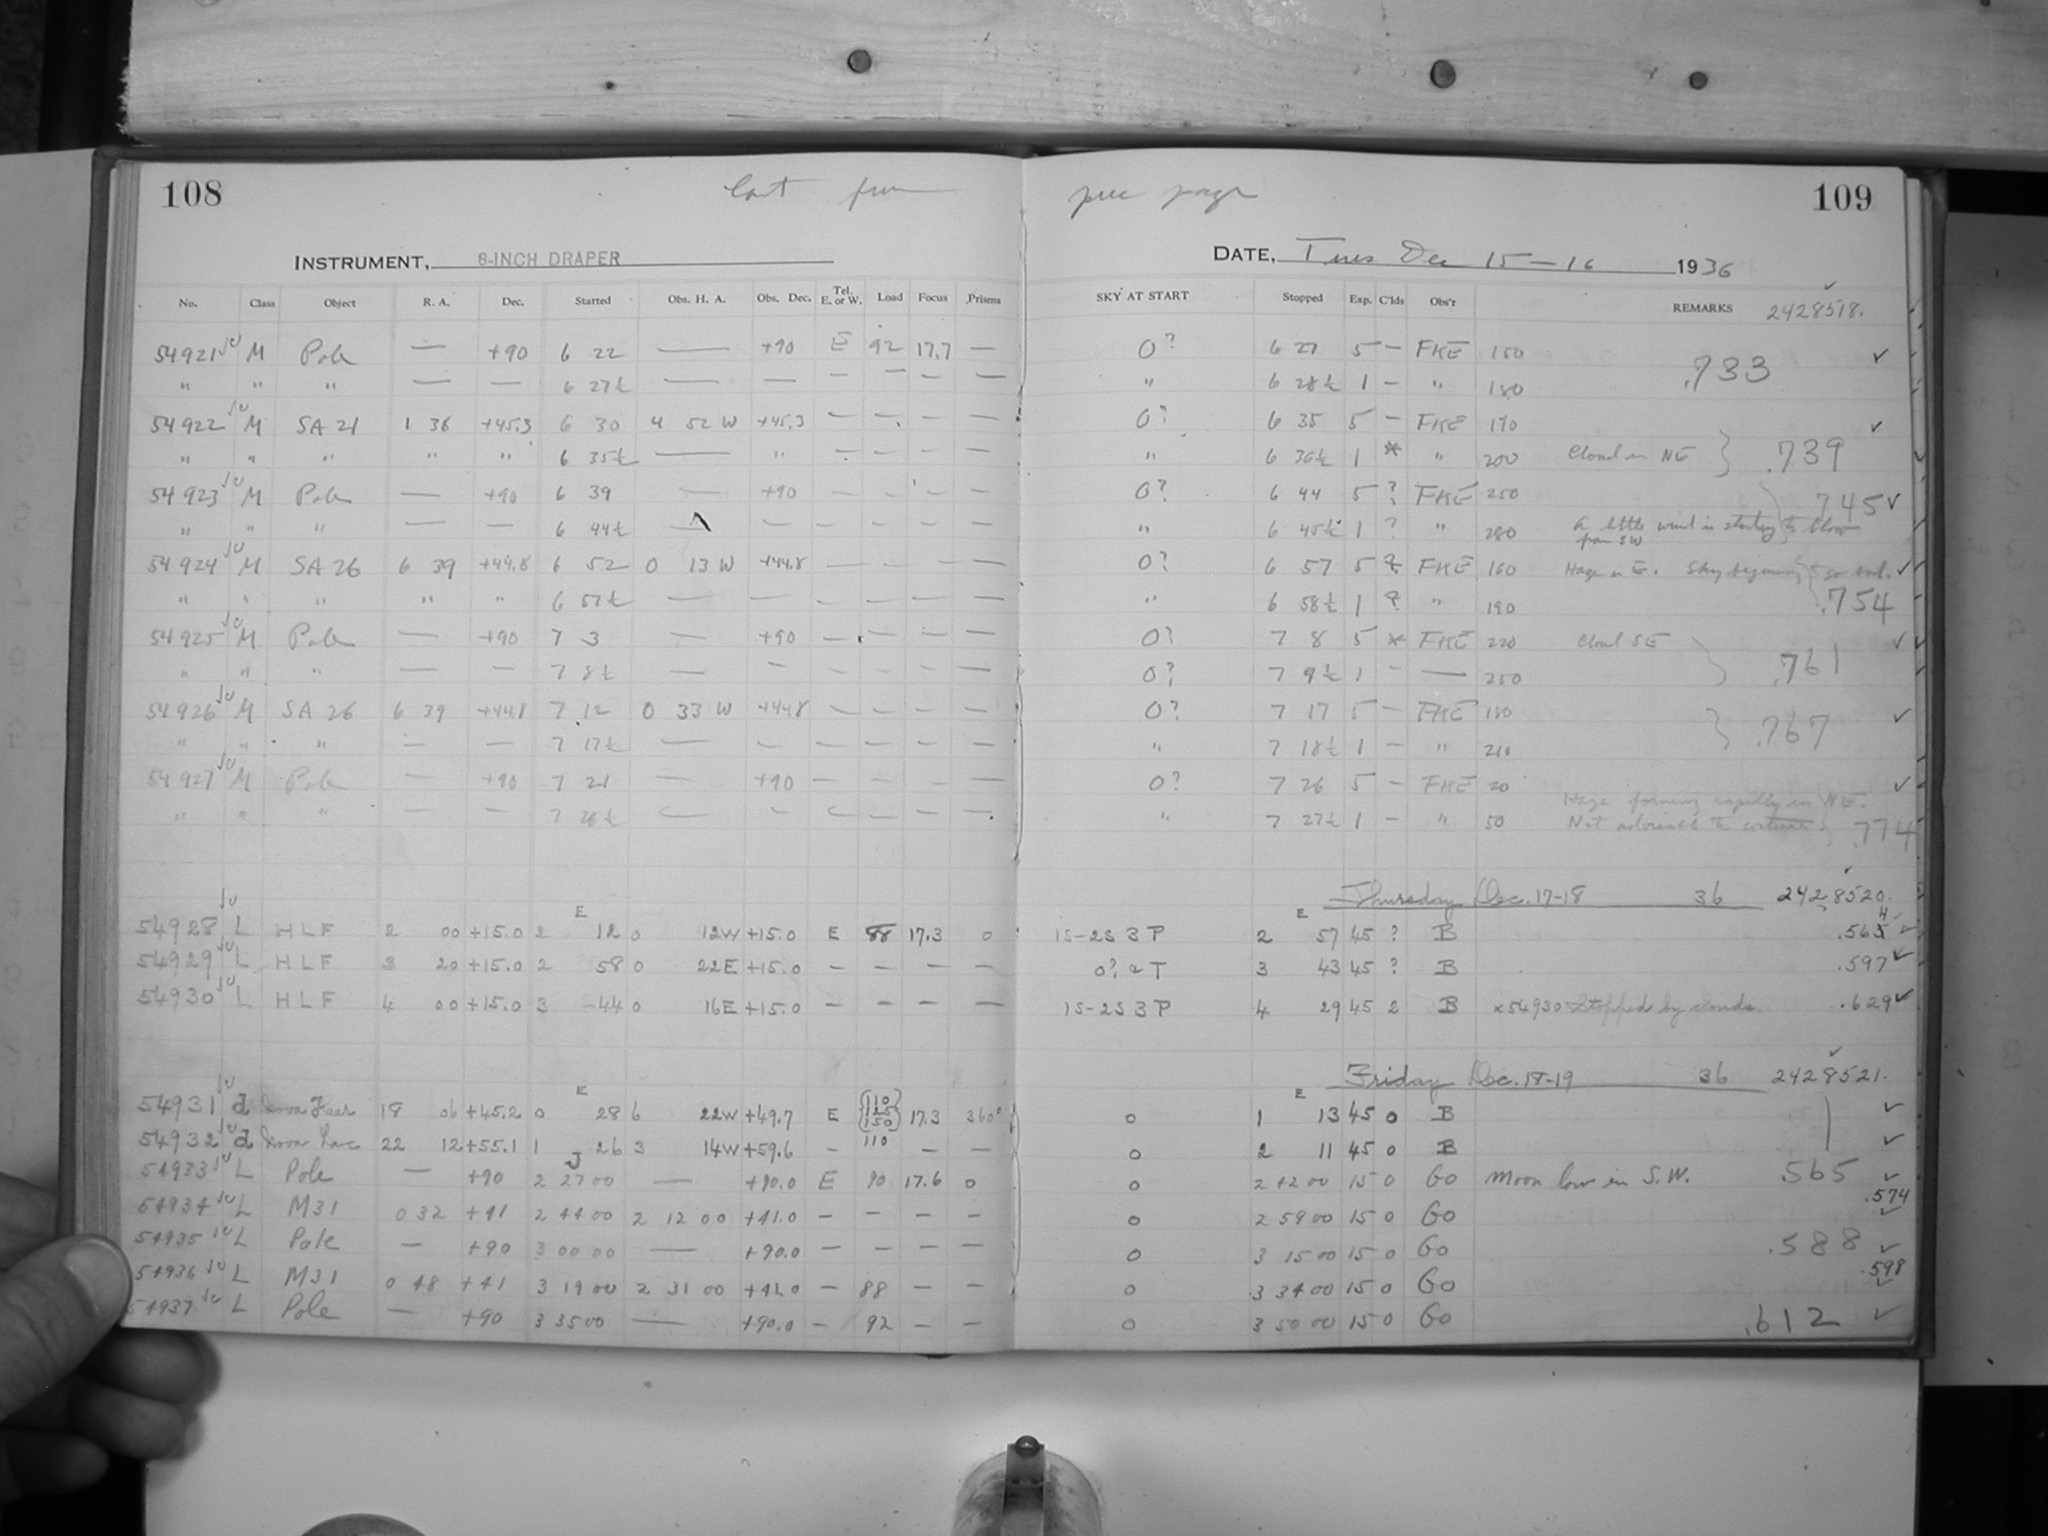 108
109
INSTRUMENT, 8-INCH DRAPER
DATE, Tues Dec 15-16 1936
No. Class Object R. A. Dec. Started Obs. H. A. Obs. Dec. Tel. E. or W. Load Focus Prisms SKY AT START Stopped Exp. C'lds Obs'r REMARKS 2428518.
54921 M Pole — +90 6 22 — +90 E 92 17.7 — 0? 6 27 5 — FKE 150 .733
" " " — — 6 27½ — — — — — — " 6 28½ 1 — " 180
54922 M SA 21 1 36 +45.3 6 30 4 52 W +45.3 — — — — 0? 6 35 5 — FKE 170
" " " " " 6 35½ — " — — — — " 6 36½ 1 * " 200 Cloud in NE } .739
54923 M Pole — +90 6 39 — +90 — — — — 0? 6 44 5 ? FKE 250 .745
" " " — — 6 44½ — — — — — — " 6 45½ 1 ? " 280 A little wind is starting to blow from SW
54924 M SA 26 6 39 +44.8 6 52 0 13 W +44.8 — — — — 0? 6 57 5 ? FKE 160 Haze in E. Sky beginning to go bad.
" " " " " 6 57½ — — — — — — " 6 58½ 1 ? " 190 .754
54925 M Pole — +90 7 3 — +90 — — — — 0? 7 8 5 * FKE 220 Cloud SE
" " " — — 7 8½ — — — — — — 0? 7 9½ 1 — — 250 .761
54926 M SA 26 6 39 +44.8 7 12 0 33 W +44.8 — — — — 0? 7 17 5 — FKE 180
" " " — — 7 17½ — — — — — — " 7 18½ 1 — " 210 .767
54927 M Pole — +90 7 21 — +90 — — — — 0? 7 26 5 — FKE 20 Haze forming rapidly in NE.
" " " — — 7 26½ — — — — — — " 7 27½ 1 — " 50 Not advisable to continue. .774
Thursday Dec. 17-18 36 2428520.
54928 L HLF 2 00 +15.0 2 E 12 0 12W +15.0 E 88 17.3 0 1S-2S 3 P 2 E 57 45 ? B .564
54929 L HLF 3 20 +15.0 2 58 0 22E +15.0 — — — — 0? 2 T 3 43 45 ? B .597
54930 L HLF 4 00 +15.0 3 44 0 16E +15.0 — — — — 1S-2S 3 P 4 29 45 2 B x54930 Stopped by clouds. .629
Friday Dec. 18-19 36 2428521.
54931 d 18 06 +45.2 0 E 28 6 22W +49.7 E {110 125 150} 17.3 360° 0 1 E 13 45 0 B
54932 d Nova Lac 22 12 +55.1 1 26 3 14W +59.6 — 110 — — 0 2 11 45 0 B
54933 L Pole — +90 2 27 00 — +90.0 E 90 17.6 0 0 2 42 00 15 0 Go Moon low in S.W. .565
54934 L M31 0 32 +41 2 44 00 2 12 00 +41.0 — — — — 0 2 59 00 15 0 Go .574
54935 L Pole — +90 3 00 00 — +90.0 — — — — 0 3 15 00 15 0 Go .588
54936 L M31 0 48 +41 3 19 00 2 31 00 +41.0 — 88 — — 0 3 34 00 15 0 Go .598
54937 L Pole — +90 3 35 00 — +90.0 — 92 — — 0 3 50 00 15 0 Go .612